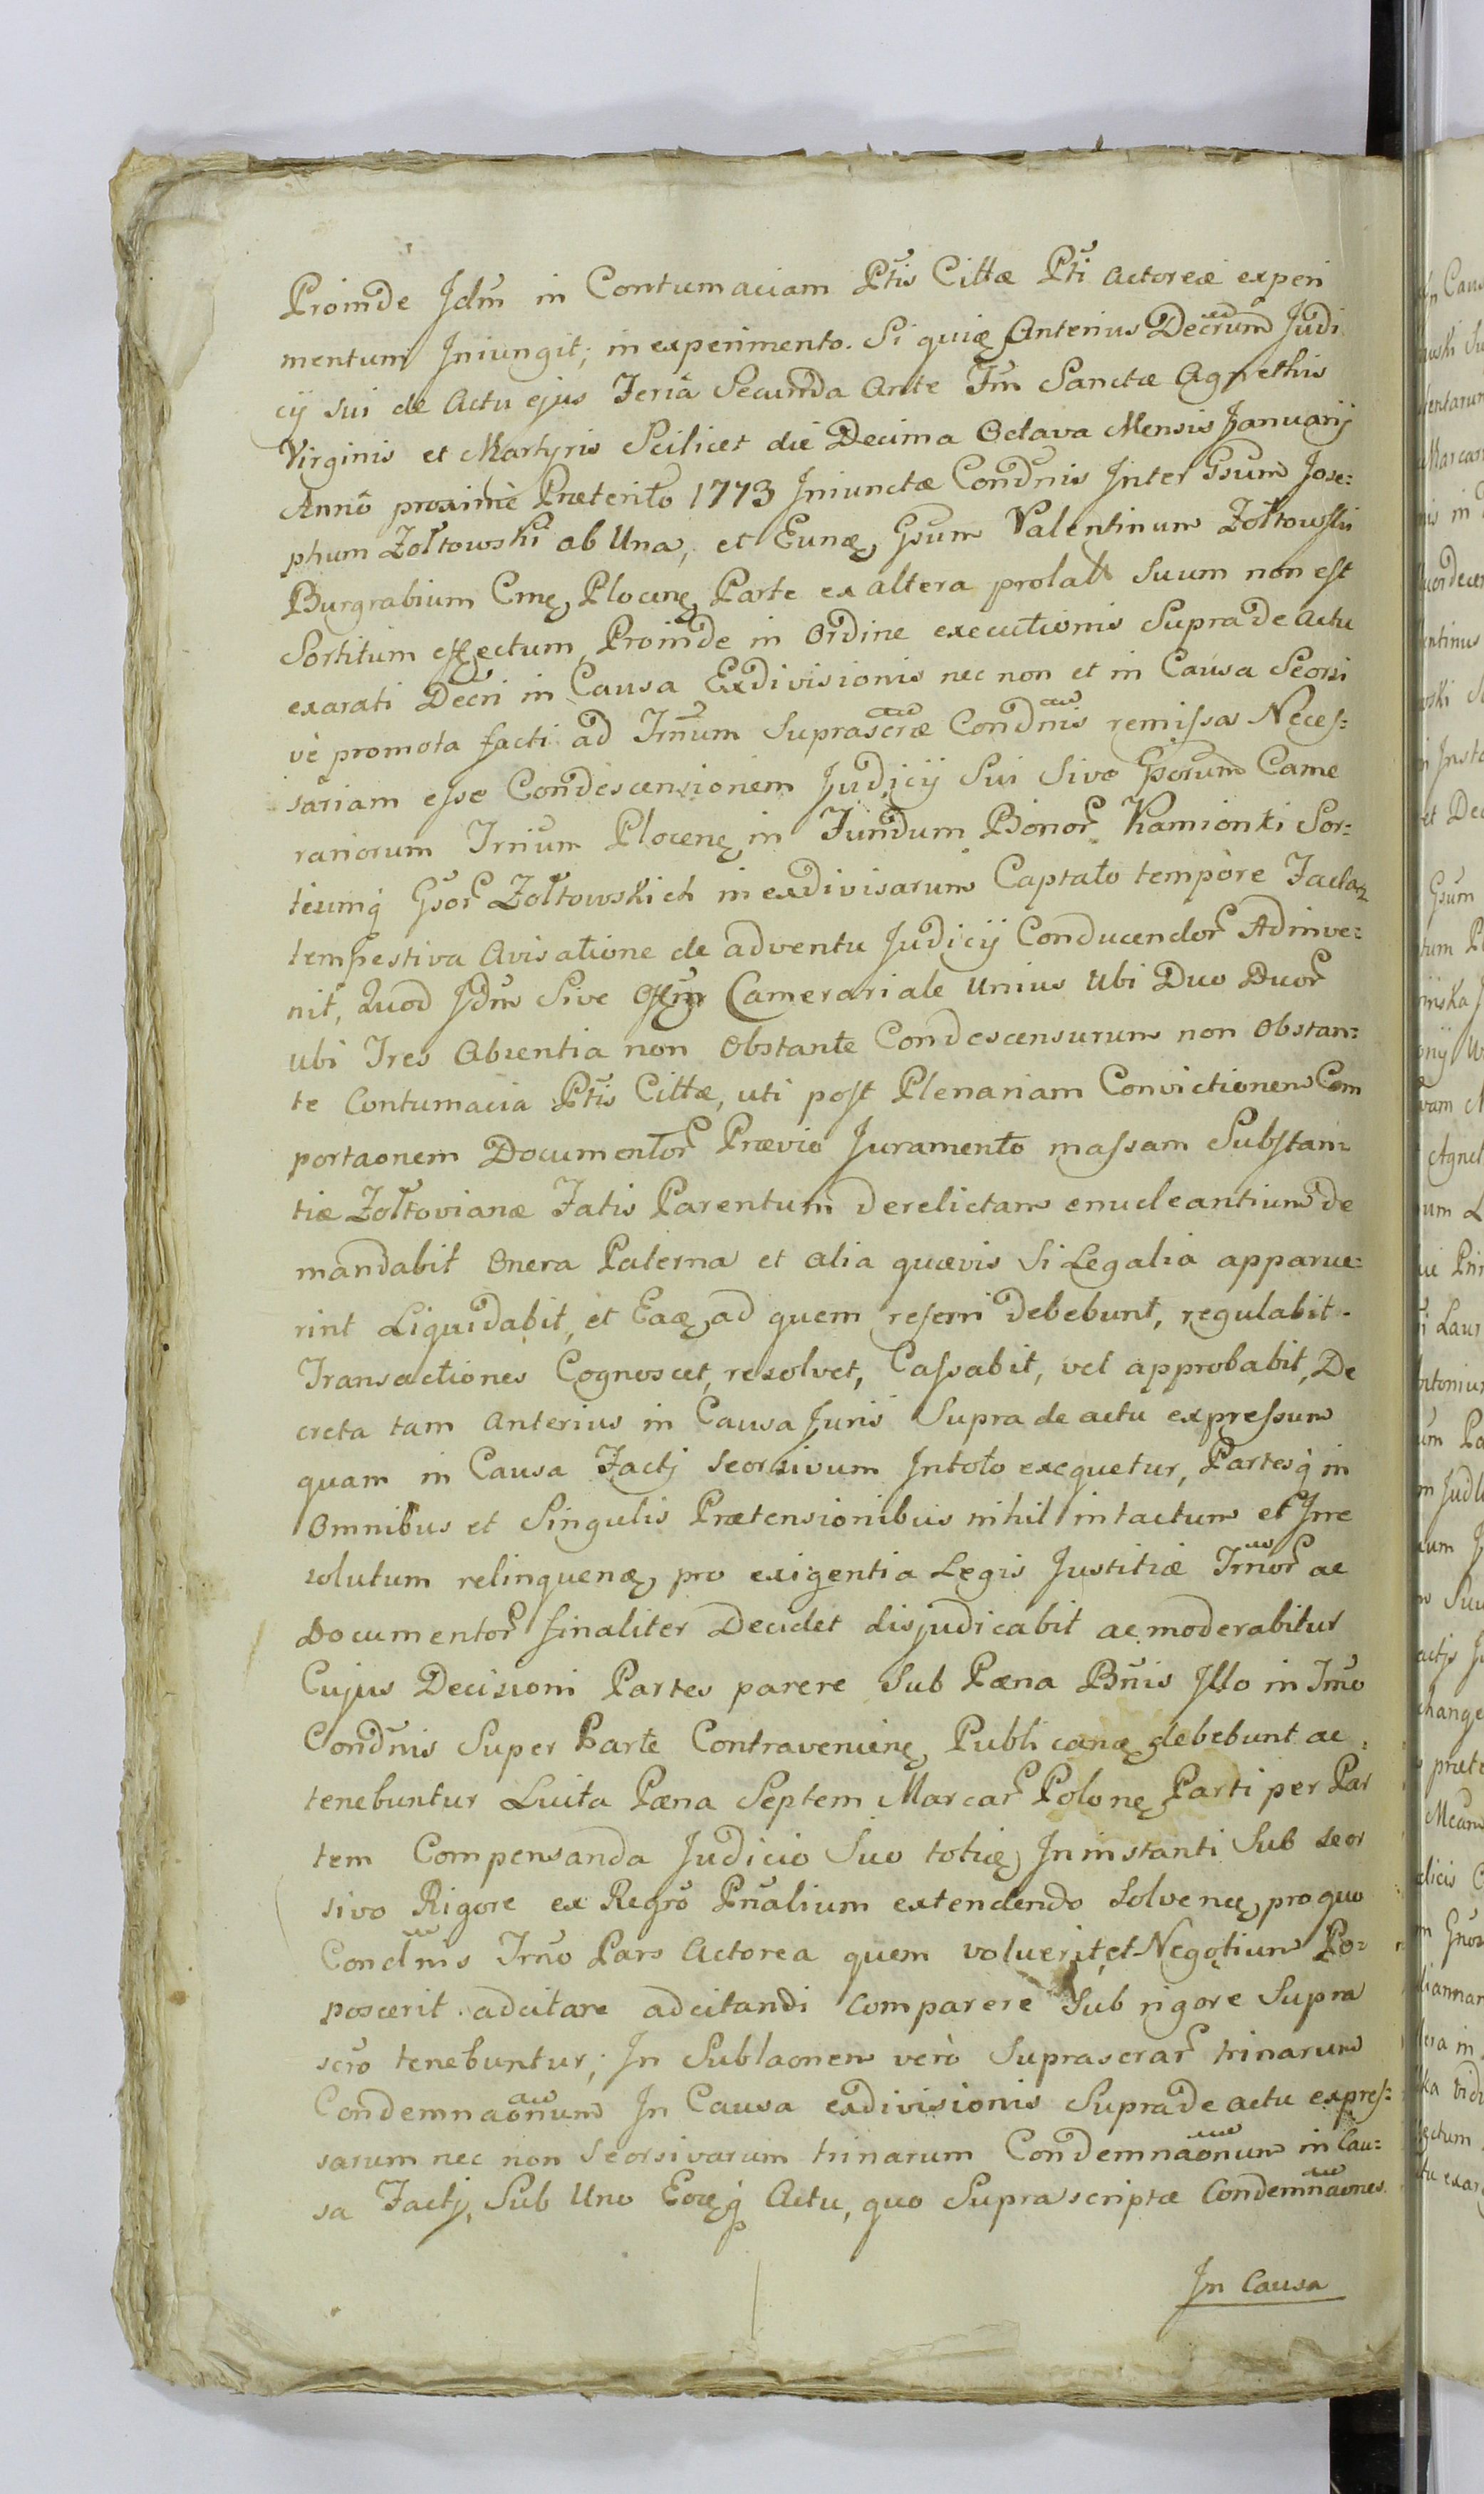 Proinde Jdm̃ in Contumaciam Ptĩs Cittæ Ptĩ Actoreæ experi
mentum Jniungit; in experimento. Si quię Anterius Decrum Judi
cÿ sui de Actu ejus Feriâ Secunda Ante Fm̃ Sanctæ Agnethis
Virginis et Martyris Scilicet die Decima Octava Mensis Januarÿ
Annô proxime Præterito 1773 Jniunctæ Condnis Jnter Gsum Jose:
phum Zołtowski ab Una, et Eunę, Gsum Valentinum Zołtowski
Burgrabium Cmę, Plocenę, Parte ex altera prolatt suum non est
Sortitum effectum, Proinde in Ordine executionis Supra de Actu
exarati Decri in Causa Exdivisionis nec non et in Causa Seorsi
vè promota facti ad Trnum Suprascræ Condnis remissa Neces:
sariam esse Condescensionem Judicÿ Sui Sive Gsorum Came
rariorum Trnium Plocenę, in Fundum Bonor̃ Kamionki Sor:
tiumq̃ Gsor̃ Zołtowskich in exdivisarum Captato tempòre Facta
tempestiva Avisatione de adventu Judicÿ Conducendor̃ Adinve:
nit, Quod Jdm̃ Sive Offm̃ Camerariale Unius Ubi Duo Duor̃
ubi Tres Absentia non Obstante Condescensurum non Obstan:
te Contumacia Ptĩs Cittæ, uti post Plenariam Convictionem Com
portaonem Documentor̃ Prævio Juramento massam Substan:
tiæ Zołtovianæ Fatis Parentum derelictam enucleantium de
mandabit Onera Paterna et alia quævis Si Legalia apparue:
rint Liquidabit, et Eaę, ad quem referri debebunt, regulabit.
Transactiones Cognoscet, resolvet, Cassabit, vel approbabit, De
creta tam Anterius in Causa Juris Supra de actu expressum
quam in Causa Factj seorsivum Jntoto exequetur, Partesq̃ in
Omnibus et Singulis Prætensionibus nihil intactum et Jrre
solutum relinquenę, pro exigentia Legis Justitiæ Trnor̃ ac
Documentor̃ finaliter Decidet disjudicabit ac moderabitur
Cujus Decisioni Partes parere Sub Pæna Bñis Jllo in Trno
Condnis Super Parte Contravenienę, Publicanę, debebunt ac
tenebuntur Luita Pæna Septem Marcar̃ Polonę, Parti per Par
tem Compensanda Judicio Suo totię, Jn instanti Sub seor
sivo Rigore ex Regro Pñalium extendendo Solvenę, pro quo
Condnis Trno Pars Actorea quem voluerit, et Negotium Po:
poscerit adcitare adcitandi Comparere Sub rigore Supra
scro tenebuntur; Jn Sublaonem verò Suprascrar̃ trinarum
Condemnaonum Jn Causa exdivisionis Supra de actu expres:
sarum nec non Seorsivarum trinarum Condemnaonum in Cau:
sa Factj, Sub Uno Eoęq̃ Actu, quo Supra scriptæ Condemnaones
Jn Causa